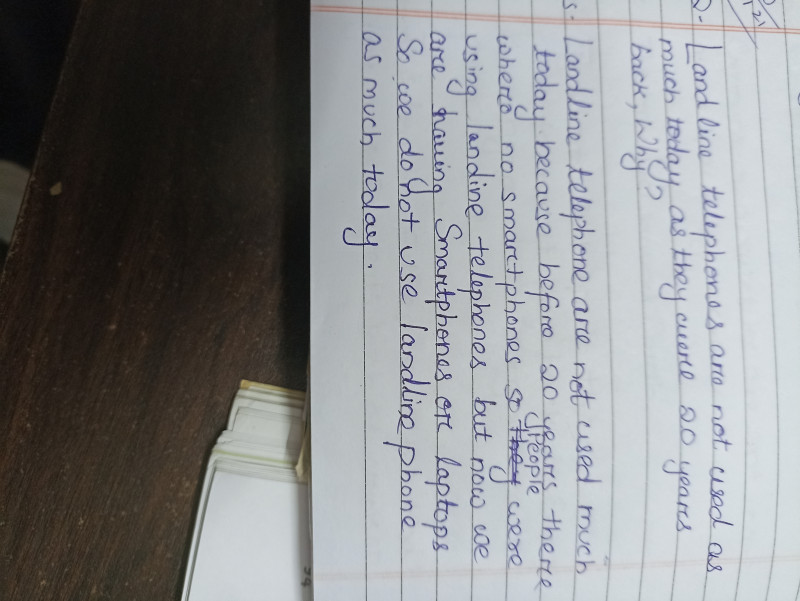 Q. Land line telephones are not used as
much today as they were 20 years
back, Why?
s. Landline telephone are not used much
today because before 20 years there
where no smartphones so people were
using landine telephones but now we
are having Smartphones or laptops
So we do not use landline phone
as much today.